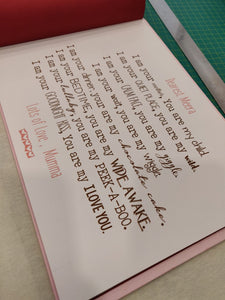 Dearest Meera
I am your mummy, you are my child.
I am your QUIET PLACE, you are my wild.
I am your CALM FACE, you are my giggle.
I am your wait, you are my wiggle.
I am your dinner, you are my chocolate cake.
I am your BEDTIME, you are my WIDE AWAKE.
I am your lullaby, you are my PEEK-A-BOO.
I am your GOODNIGHT KISS, you are my I LOVE YOU.
Lots of Love, Mumma